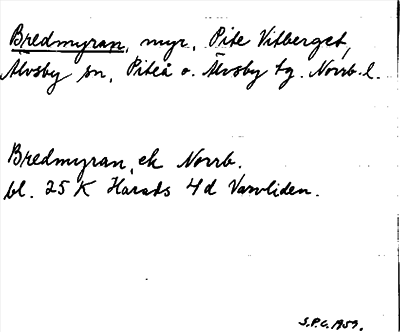 Bredmyran, myr, Pite Vitberget,
Älvsby sn, Piteå o. Älvsby tg. Norrb. l.
Bredmyran, ek Norrb.
bl. 25 K Harads 4d Varvliden.
S.P.G. 1959.